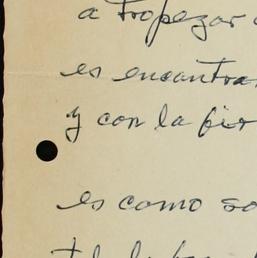 a tropezar
es encontra
y con la
es como so